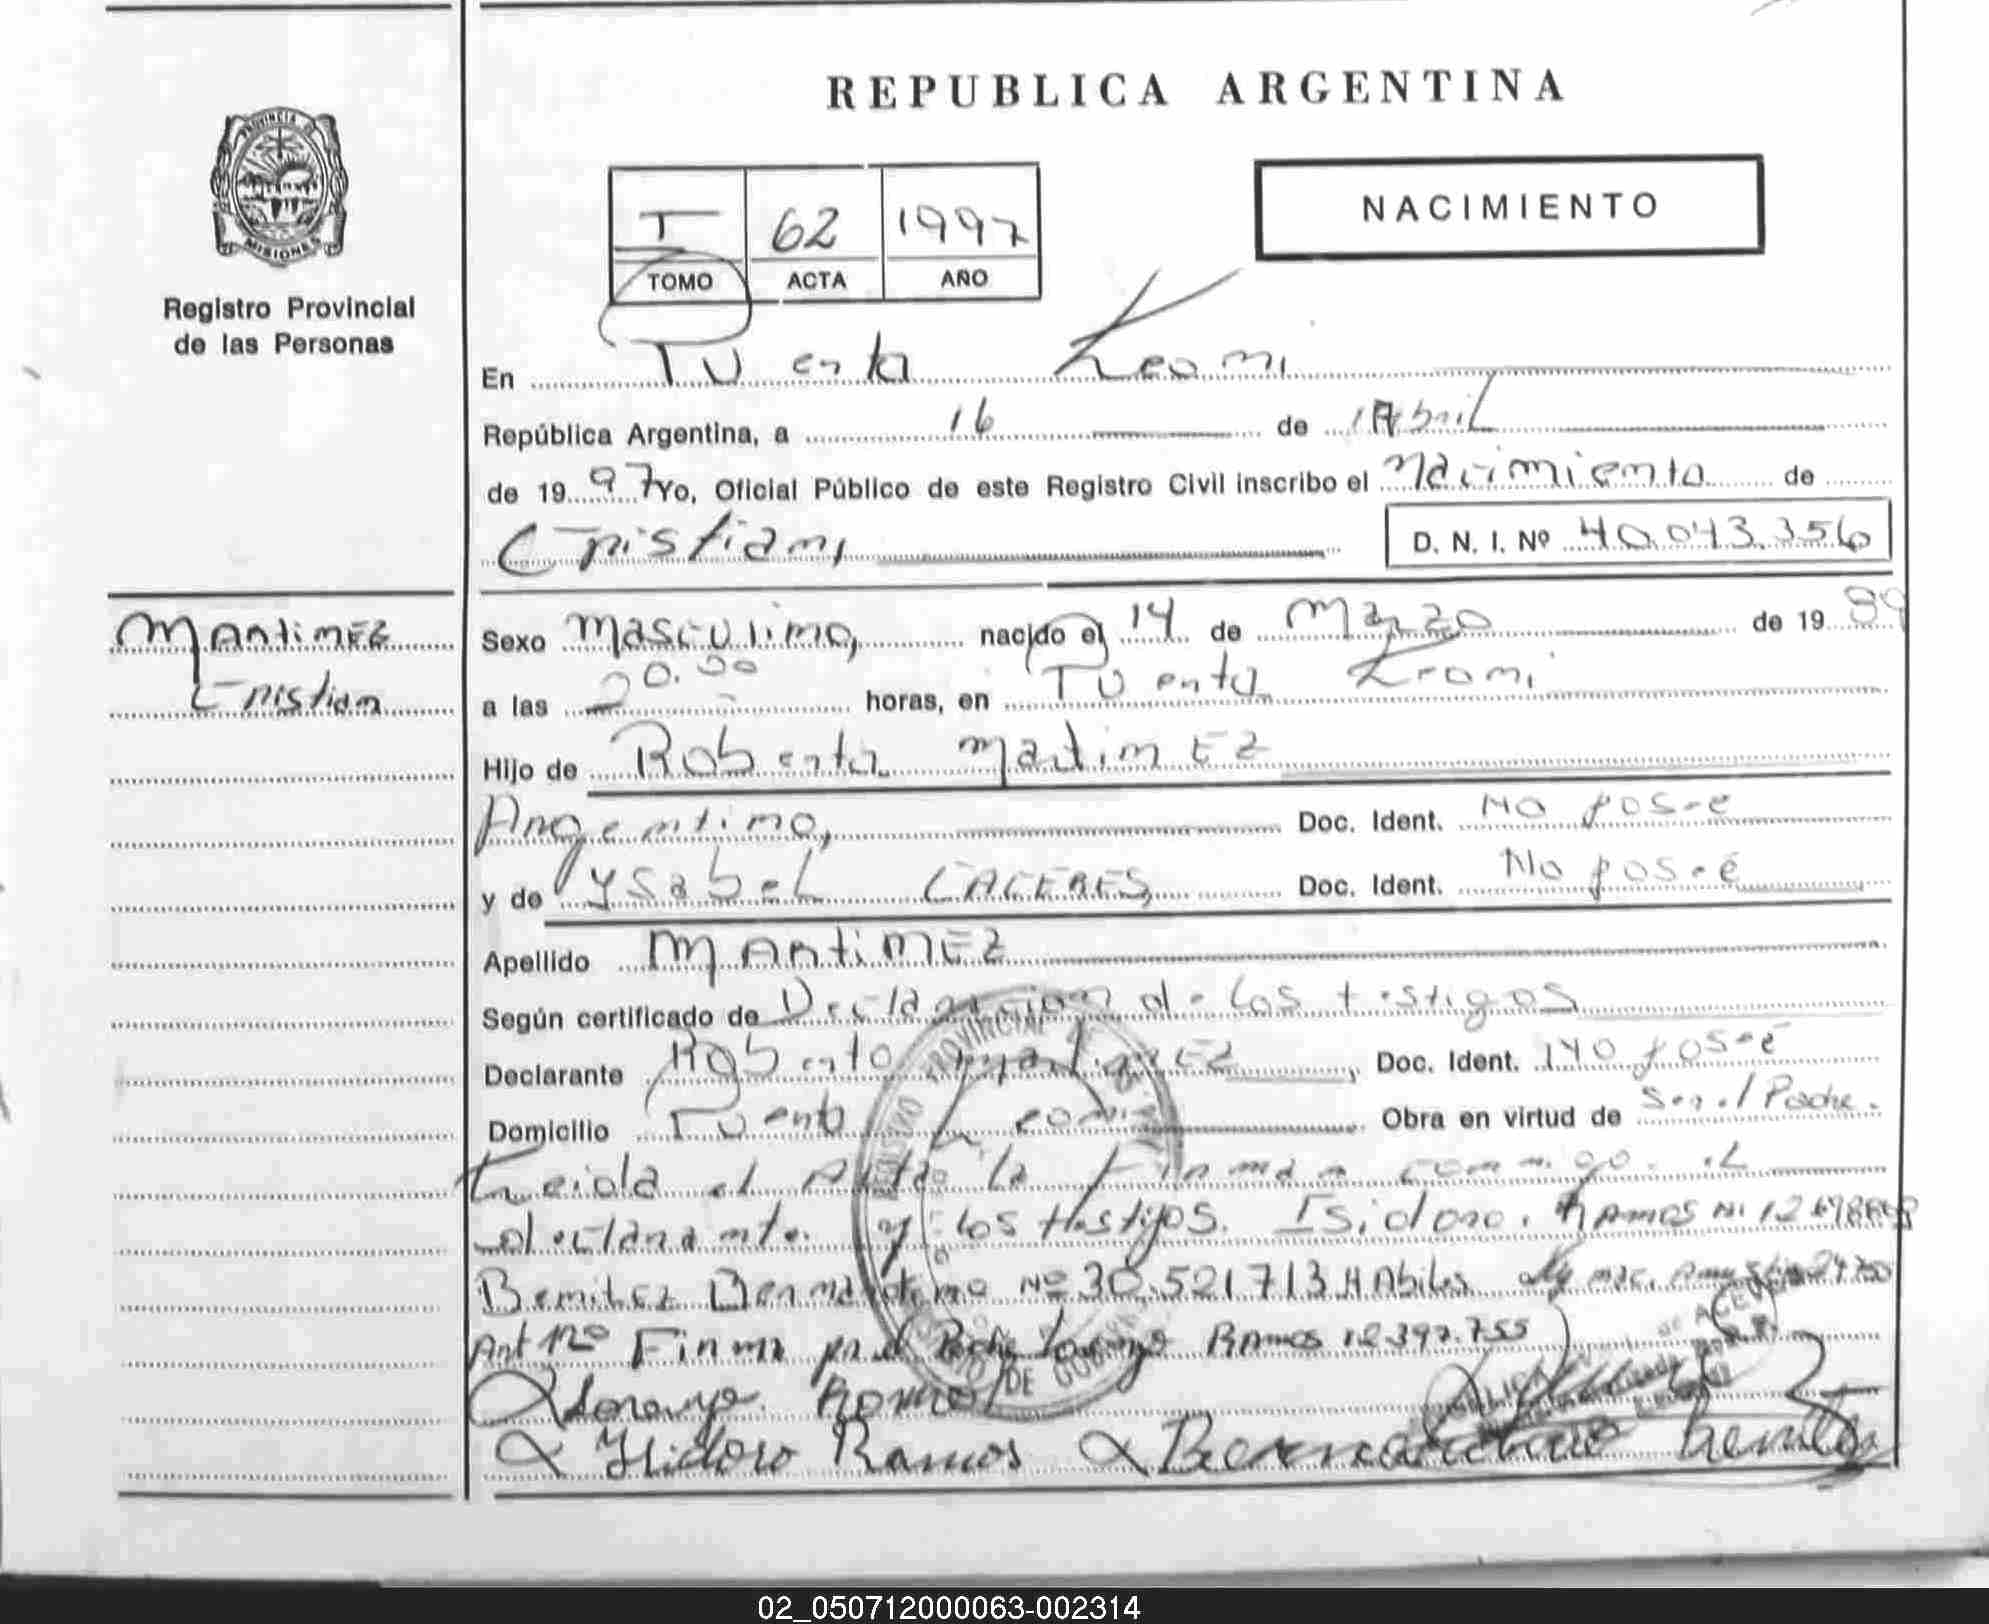 REPUBLICA ARGENTINA
PROVINCIA DE
MISIONES
Registro Provincial
de las Personas
T 62 1997
TOMO ACTA AÑO
NACIMIENTO
En Puerto Leoni
República Argentina, a 16 de Abril
de 1997 Yo, Oficial Público de este Registro Civil inscribo el Nacimiento de
Cristian, D. N. I. Nº 40.043.356
Martinez
Cristian
Sexo masculino, nacido el 14 de Marzo de 1989
a las 20.00 horas, en Puerto Leoni
Hijo de Roberto Martinez
Argentino, Doc. Ident. No posee
y de Ysabel CACERES, Doc. Ident. No posee
Apellido MARTINEZ
Según certificado de Declaracion de los testigos
Declarante Roberto Martinez, Doc. Ident. No posee
Domicilio Puerto Leoni Obra en virtud de Ser el Padre.
Leida el Acta la Firman conmigo el
declarante y los testigos. Isidoro Ramos
Benitez Bernardino Nº 30.521713 Habiles
Art 12º Firma por el Padre Lorenzo Ramos 12.397.755
Lorenzo Ramos
Isidoro Ramos Bernardino Benitez
02_050712000063-002314